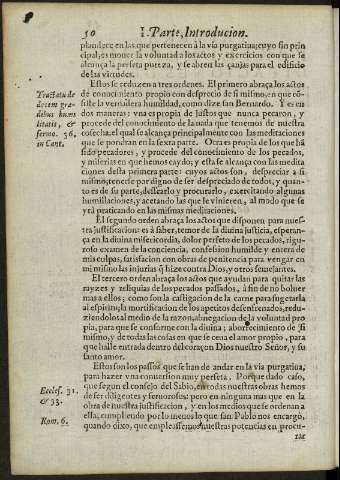 50
1. Parte, Introducion.
plandece en las que pertenecen à la via purgatiua; cuyo fin prin
cipal, es mouer la voluntad a los actos y exercicios con que se
alcança la perfeta pureza, y se abren las çanjas para el edificio
de las virtudes.
Estos se reduzen a tres ordenes. El primero abraça los actos
Tractatu de
decem gra-
dibus humi
litatis, &
sermo. 36.
in Cant.
de conocimiento propio con desprecio de si mismo, en que cõ-
siste la verdadera humildad, como dize san Bernardo. Y es en
dos maneras: vna es propia de Iustos que nunca pecaron, y
procede del conocimiento de la nada que tenemos de nuestra
cosecha: el qual se alcança principalmente con las meditaciones
que se pondran en la sexta parte. Otra es propia de los que hã
sido pecadores, y procede del conocimiento de los pecados,
y miserias en que hemos caydo; y esta se alcança con las medita
ciones desta primera parte: cuyos actos son, despreciar a si
mismo, tenerse por digno de ser despreciado de todos, y quan-
to es de su parte, dessearlo y procurarlo, exercitando algunas
humillaciones, y acetando las que le vinieren, al modo que se
yrà praticando en las mismas meditaciones.
El segundo orden abraça los actos que disponen para nues-
tra justificacion: es à saber, temor de la diuina justicia, esperan-
ça en la diuina misericordia, dolor perfeto de los pecados, rigu-
roso examen de la conciencia, confession humilde y entera de
mis culpas, satisfacion con obras de penitencia para vengar en
mi mismo las injurias q̃ hize contra Dios, y otros semejantes.
El tercero orden abraça los actos que ayudan para quitar las
rayzes y reliquias de los pecados passados, à fin de no boluer
mas a ellos; como son la castigacion de la carne para sugetarla
al espiritu; la mortificacion de los apetitos desenfrenados, redu-
ziendolos al medio de la razon; abnegacion de la voluntad pro
pia, para que se conforme con la diuina; aborrecimiento de si
mismo, y de todas las cosas en que se ceua el amor propio, para
que halle entrada dentro del coraçon Dios nuestro Señor, y su
santo amor.
Estos son los passos que se han de andar en la via purgatiua,
para hazer vna conuersion muy perfeta. Porque dado caso,
Eccles. 31.
& 33.
que segun el consejo del Sabio, en todas nuestras obras hemos
de ser diligentes y feruorosos; pero en ninguna mas que en la
obra de nuestra justificacion, y en los medios que se ordenan a
Rom. 6.
ella, cumpliendo por lo menos lo que san Pablo nos encargò,
quando dixo, que empleassemos nuestras potencias en procu-